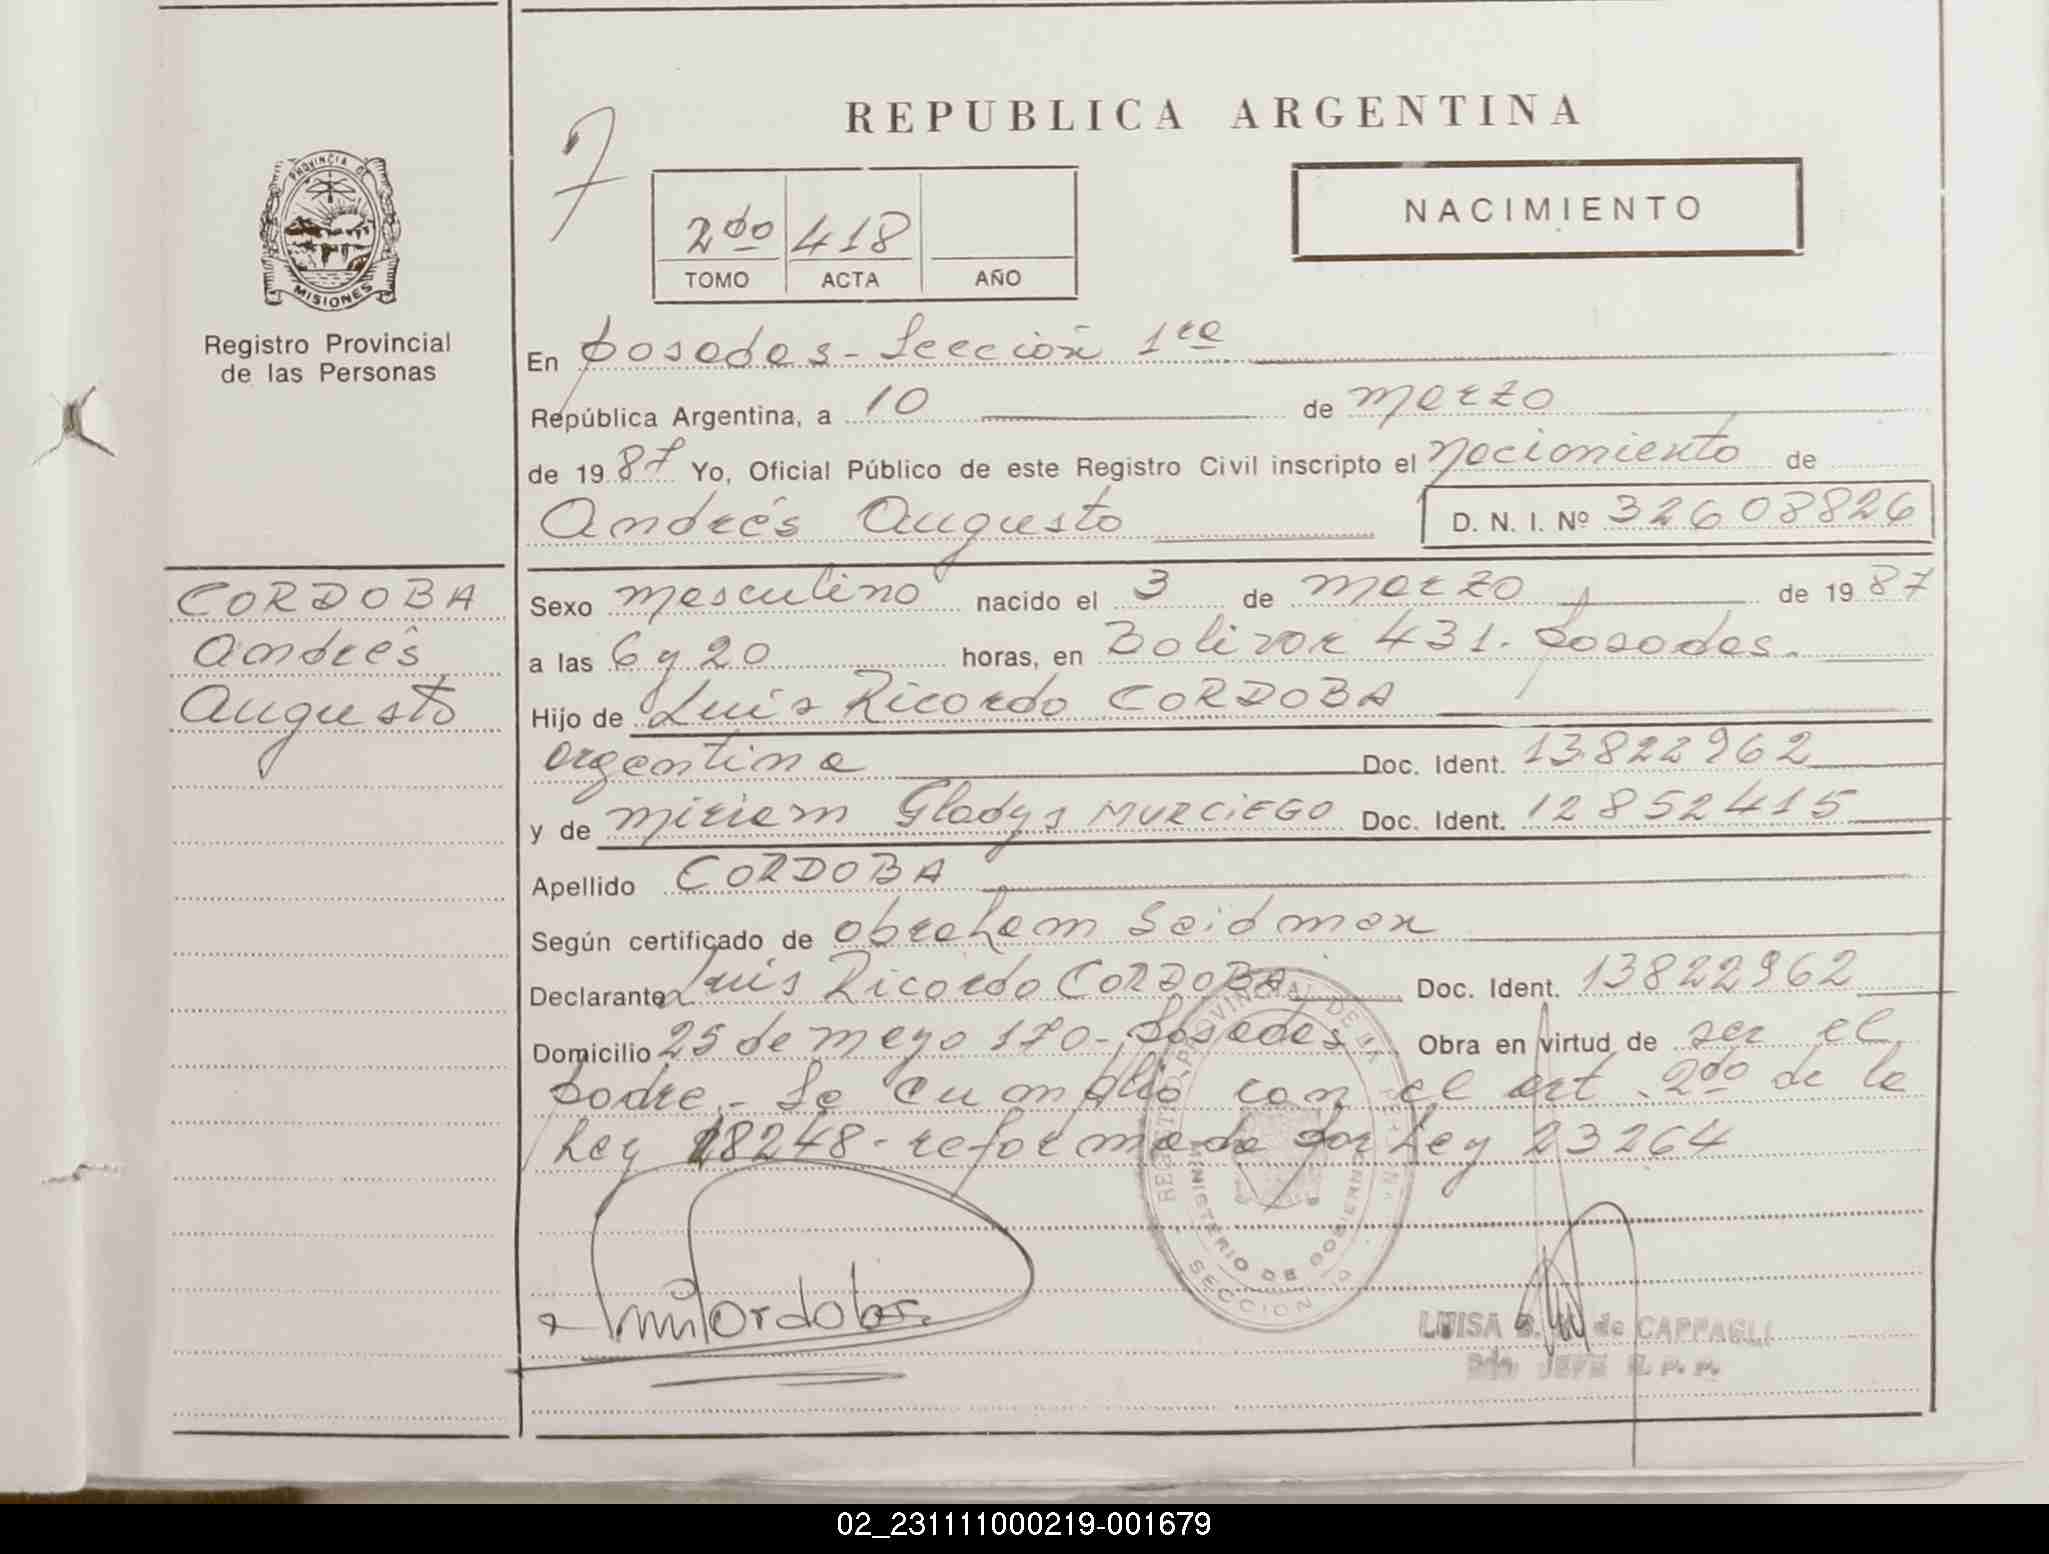 REPUBLICA ARGENTINA
7
PROVINCIA DE
MISIONES
Registro Provincial
de las Personas
2do 418
TOMO ACTA AÑO
NACIMIENTO
En Posadas - Sección 1ra
República Argentina, a 10 de marzo
de 1987 Yo, Oficial Público de este Registro Civil inscripto el nacimiento de
Andrés Augusto D. N. I. Nº 32608826
CORDOBA
Andrés
Augusto
Sexo masculino nacido el 3 de marzo de 1987
a las 6 y 20 horas, en Bolivar 431. Posadas.
Hijo de Luis Ricardo CORDOBA
argentina Doc. Ident. 13822962
y de Miriam Gladys MURCIEGO Doc. Ident. 12852415
Apellido CORDOBA
Según certificado de Abraham Seidman
Declarante Luis Ricardo CORDOBA Doc. Ident. 13822962
Domicilio 25 de mayo 170 - Posadas Obra en virtud de ser el
padre. - Se cumplió con el art. 2do de la
Ley 18248 - reformada por Ley 23264
REGISTRO PROVINCIAL DE LA
MINISTERIO DE GOBIERNO
SECCION
LUISA de CAPPAGLI
JEFE R. P. P.
02_231111000219-001679